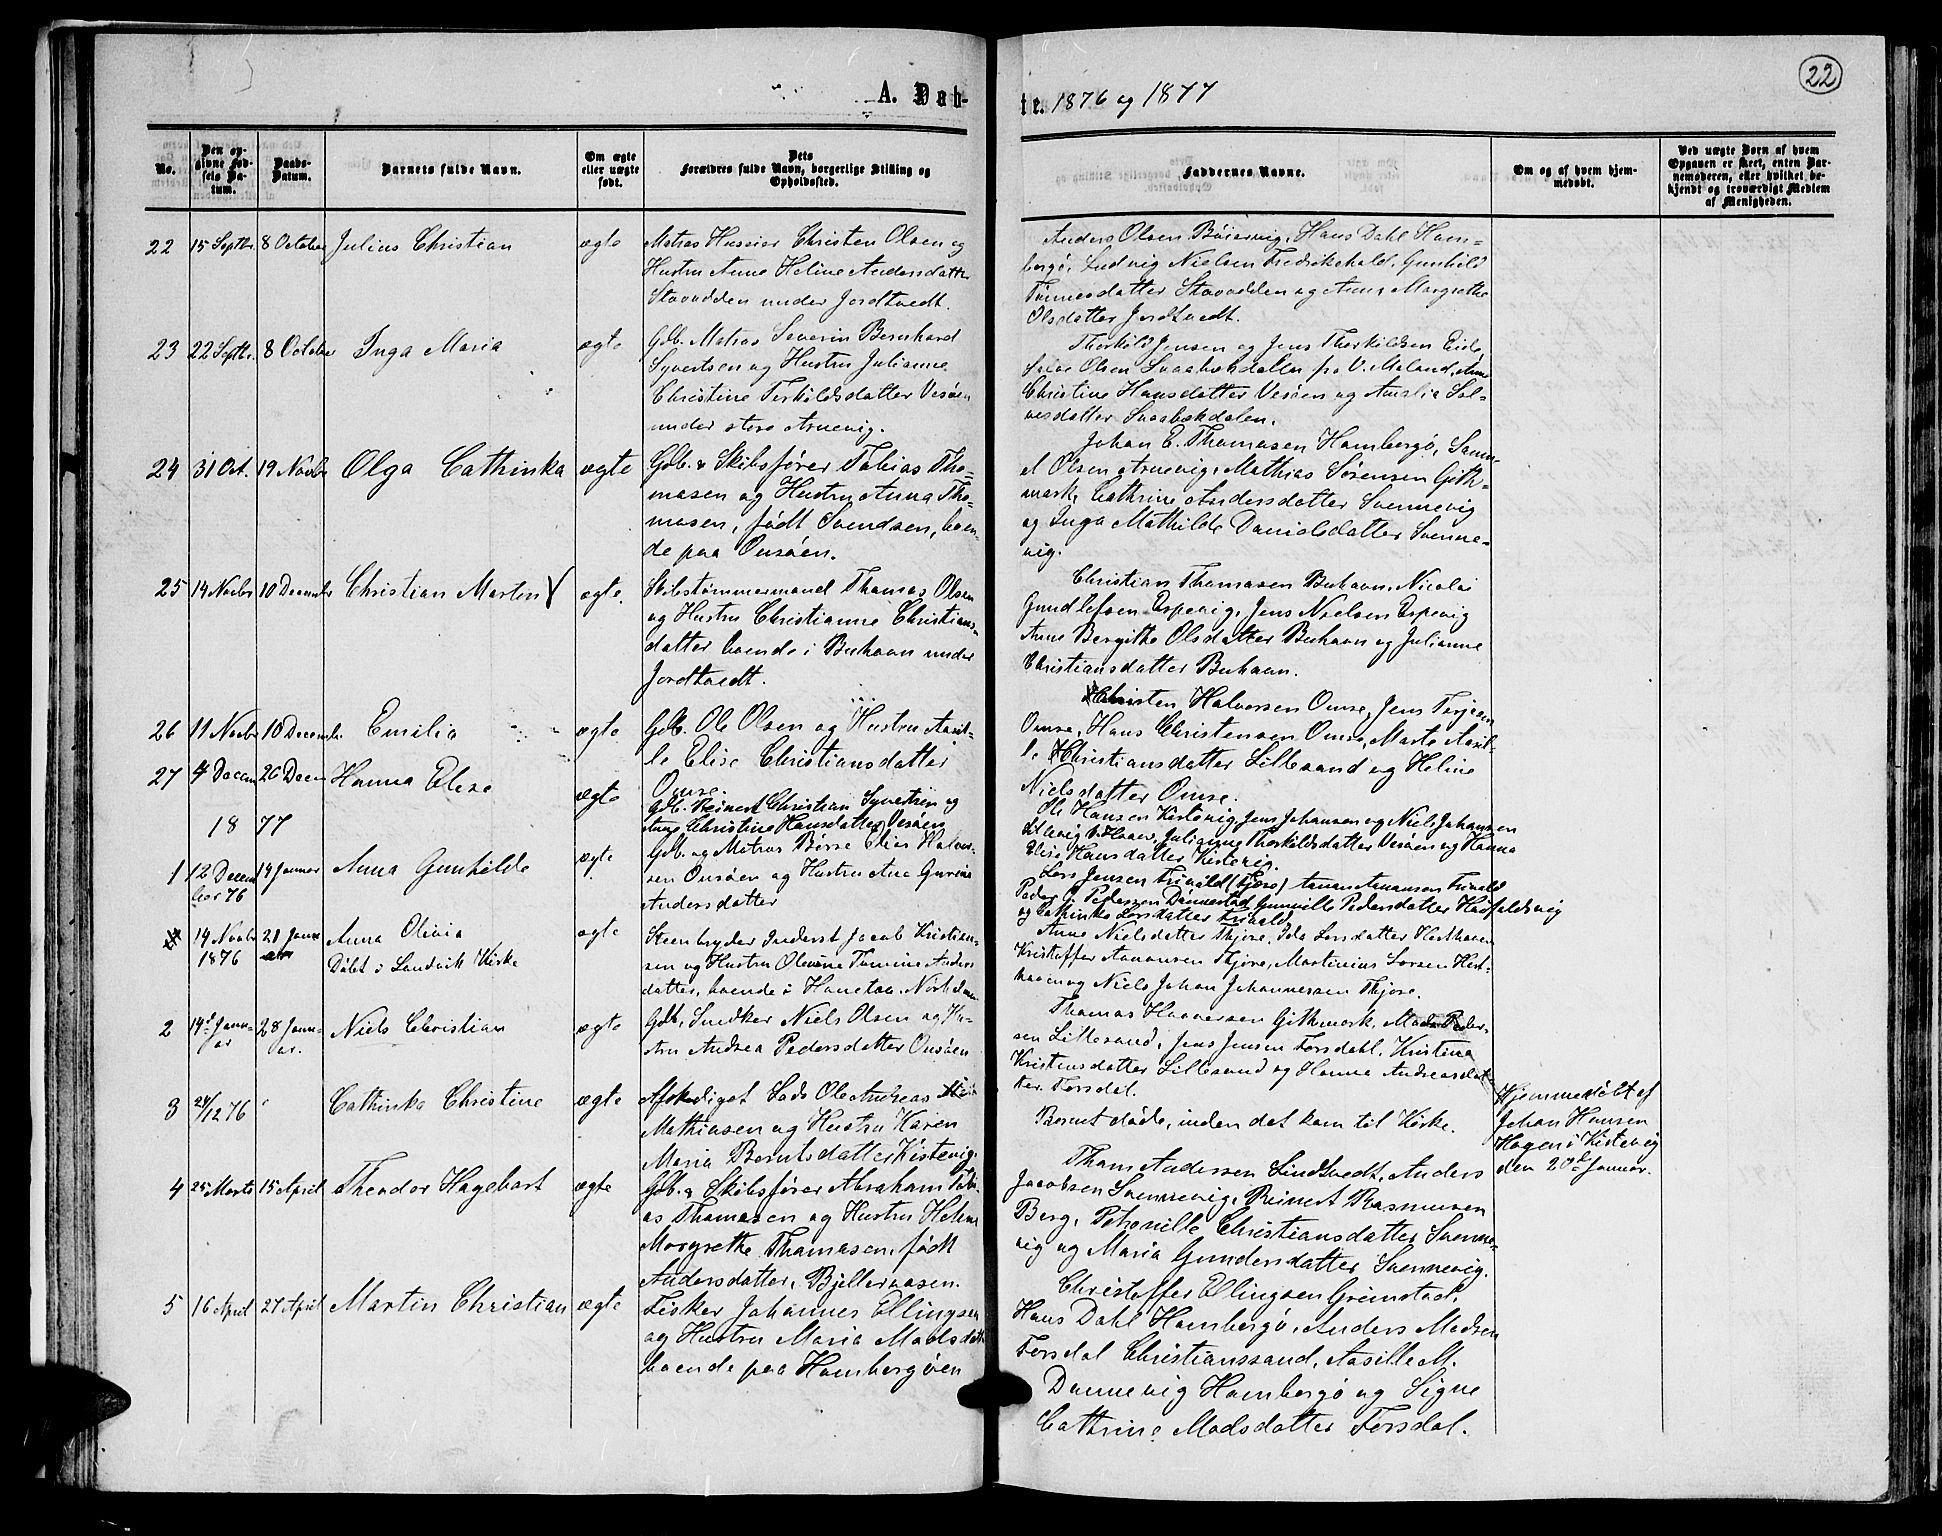 22
A. Døb-
te. 1876 og 1877
No.
Den op-
givne Fød-
sels Da-
tum.
Daabs-
Datum.
Barnets fulde Navn.
Om ægte
eller uægte
født.
Dets
Forældres fulde Navn, borgerlige Stilling og
Opholdssted.
Faddernes Navne.
Om og af hvem hjem-
medøbt.
Ved uægte Børn af hvem
Opgaven er skeet, enten Bar-
nemoderen, eller hvilket be-
kjendt og troværdigt Medlem
af Menigheden.
22 15 Septbr. 8 October Julius Christian ægte
Matros Huseier Christen Olsen og
Hustru Anne Heline Andersdatter
Stavodden under Jordtvedt.
Anders Olsen Bøiesvig, Hans Dahl Ham-
bergø, Ludvig Nielsen Fredrikshald, Gunhild
Tønnesdatter Stavodden og Anne Margrethe
Olsdatter Jordtvedt.
23 22 Septbr. 8 October Inga Maria ægte
Gdb. Matros Severin Bernhard
Syvertsen og Hustru Julianne
Christine Terkildsdatter Vesøen
under store Aruevig.
Thorkild Jensen og Jens Thorkildsen Eide,
Salve Olsen Svaabekdalen fra V. Moland, Anne
Christine Hansdatter Vesøen og Amalia Sal-
vesdatter Svaabekdalen.
24 31 Oct. 19 Novbr Olga Cathinka ægte
Gdb. & Skibsfører Tobias Tho-
masen og Hustru Anna Tho-
masen, født Svendsen, boen-
de paa Onsøen.
Johan E. Thomasen Hambergø, Samu-
el Olsen Aruevig, Mathias Sørensen Gith-
mark, Cathrine Andersdatter Svennevig
og Inga Mathilde Danielsdatter Svenne-
vig.
25 14 Novbr 10 Decembr Christian Morten ægte.
Skibstømmermand Thomas Olsen
og Hustru Christianne Christians-
datter boende i Buhavn under
Jordtvedt.
Christian Thomasen Buhavn, Nicolai
Gundlefsen Espevig, Jens Nielsen Espevig
Anne Bergithe Olsdatter Buhavn og Julianne
Christiansdatter Buhavn.
26 11 Novbr 10 Decembr. Emilie ægte
Gdb. Ole Olsen og Hustru Aasil-
le Elise Christiansdatter
Omre.
Christen Halvorsen Omre, Jens Terjesen
Omre, Hans Christensen Omre, Marte Aasil-
le Christiansdatter Lillesand og Heline
Nielsdatter Omre.
27 4 Decem 26 Decm Hanna Elise ægte
Gdb. Reinert Christian Syvertsen og
Anne Christine Hansdatter Vesøen
Ole Hansen Kistevig, Jens Johansen og Niels Johansen
Julianne Thorkildsdatter Vesøen og Hanna
Elise Hansdatter Kistevig.
18 77
1 12 Decem
ber 76 14 Januar Anna Gunhilde ægte
Gdb. og Matros Børre Elias Halvor-
sen Onsøen og Hustru Ane Gurine
Andersdatter
Lars Jensen Trivold (Fjære) Aanon Aanonsen Trivold
Peder G. Pedersen Dønnestad, Gunville Pedersdatter
og Cathinka Larsdatter Trivold
14 Novbr
1876 21 Janu
ar Anna Olivia
Døbt i Landvik Kirke ægte
Steenbryder Inderst Jacob Kristian-
sen og Hustru Olevine Tomine Anders
datter, boende i
Anne Nielsdatter Thjøre, Ida Larsdatter Hesthaven
Kristoffer Aanonsen Thjøre, Martinius Larsen Hest-
haven og Niels Johan Johannessen Thjøre.
2 14de Janu-
ar 28 Janu-
ar. Niels Christian ægte
Gdb. Snedker Niels Olsen og Hu-
stru Andrea Pedersdatter Onsøen
Thomas Haaversen Githmark, Mads Peder-
sen Lillesand, Jens Jensen Forsdahl, Kristina
Kristensdatter Lillesand og Hanna Andreasdat-
ter Forsdal.
3 24/12 76 Cathinka Christine ægte
Afskediget Lods Ole Andreas
Mathiasen og Hustru Karen
Maria Berntsdatter Kistevig.
Barnet døde, inden det kom til Kirke.
Hjemmedøbt af
Johan Hansen
Hagen i Kistevig
den 20de Januar.
4 25 Marts 15 April Theodor Hagebart ægte
Gdb. & Skibsfører Abraham Tobi-
as Thomasen og Hustru Helene
Margrethe Thomasen, født
Andersdatter, Bjellervaasen.
Thom Andersen Lindtvedt, Anders
Jacobsen Svennevig, Reinert Rasmussen
Berg, Petronille Christiansdatter Svenne-
vig og Maria Gundersdatter Svennevig.
5 16 April 27 April Martin Christian ægte
Fisker Johannes Ellingsen
og Hustru Maria Madsdatter
boende paa Hambergøen
Christoffer Ellingsen Grimstad,
Hans Dahl Hambergø, Anders Madsen
Forsdal Christianssand, Aasille M.
Dannevig Hambergø og Signe
Cathrine Madsdatter Forsdal.